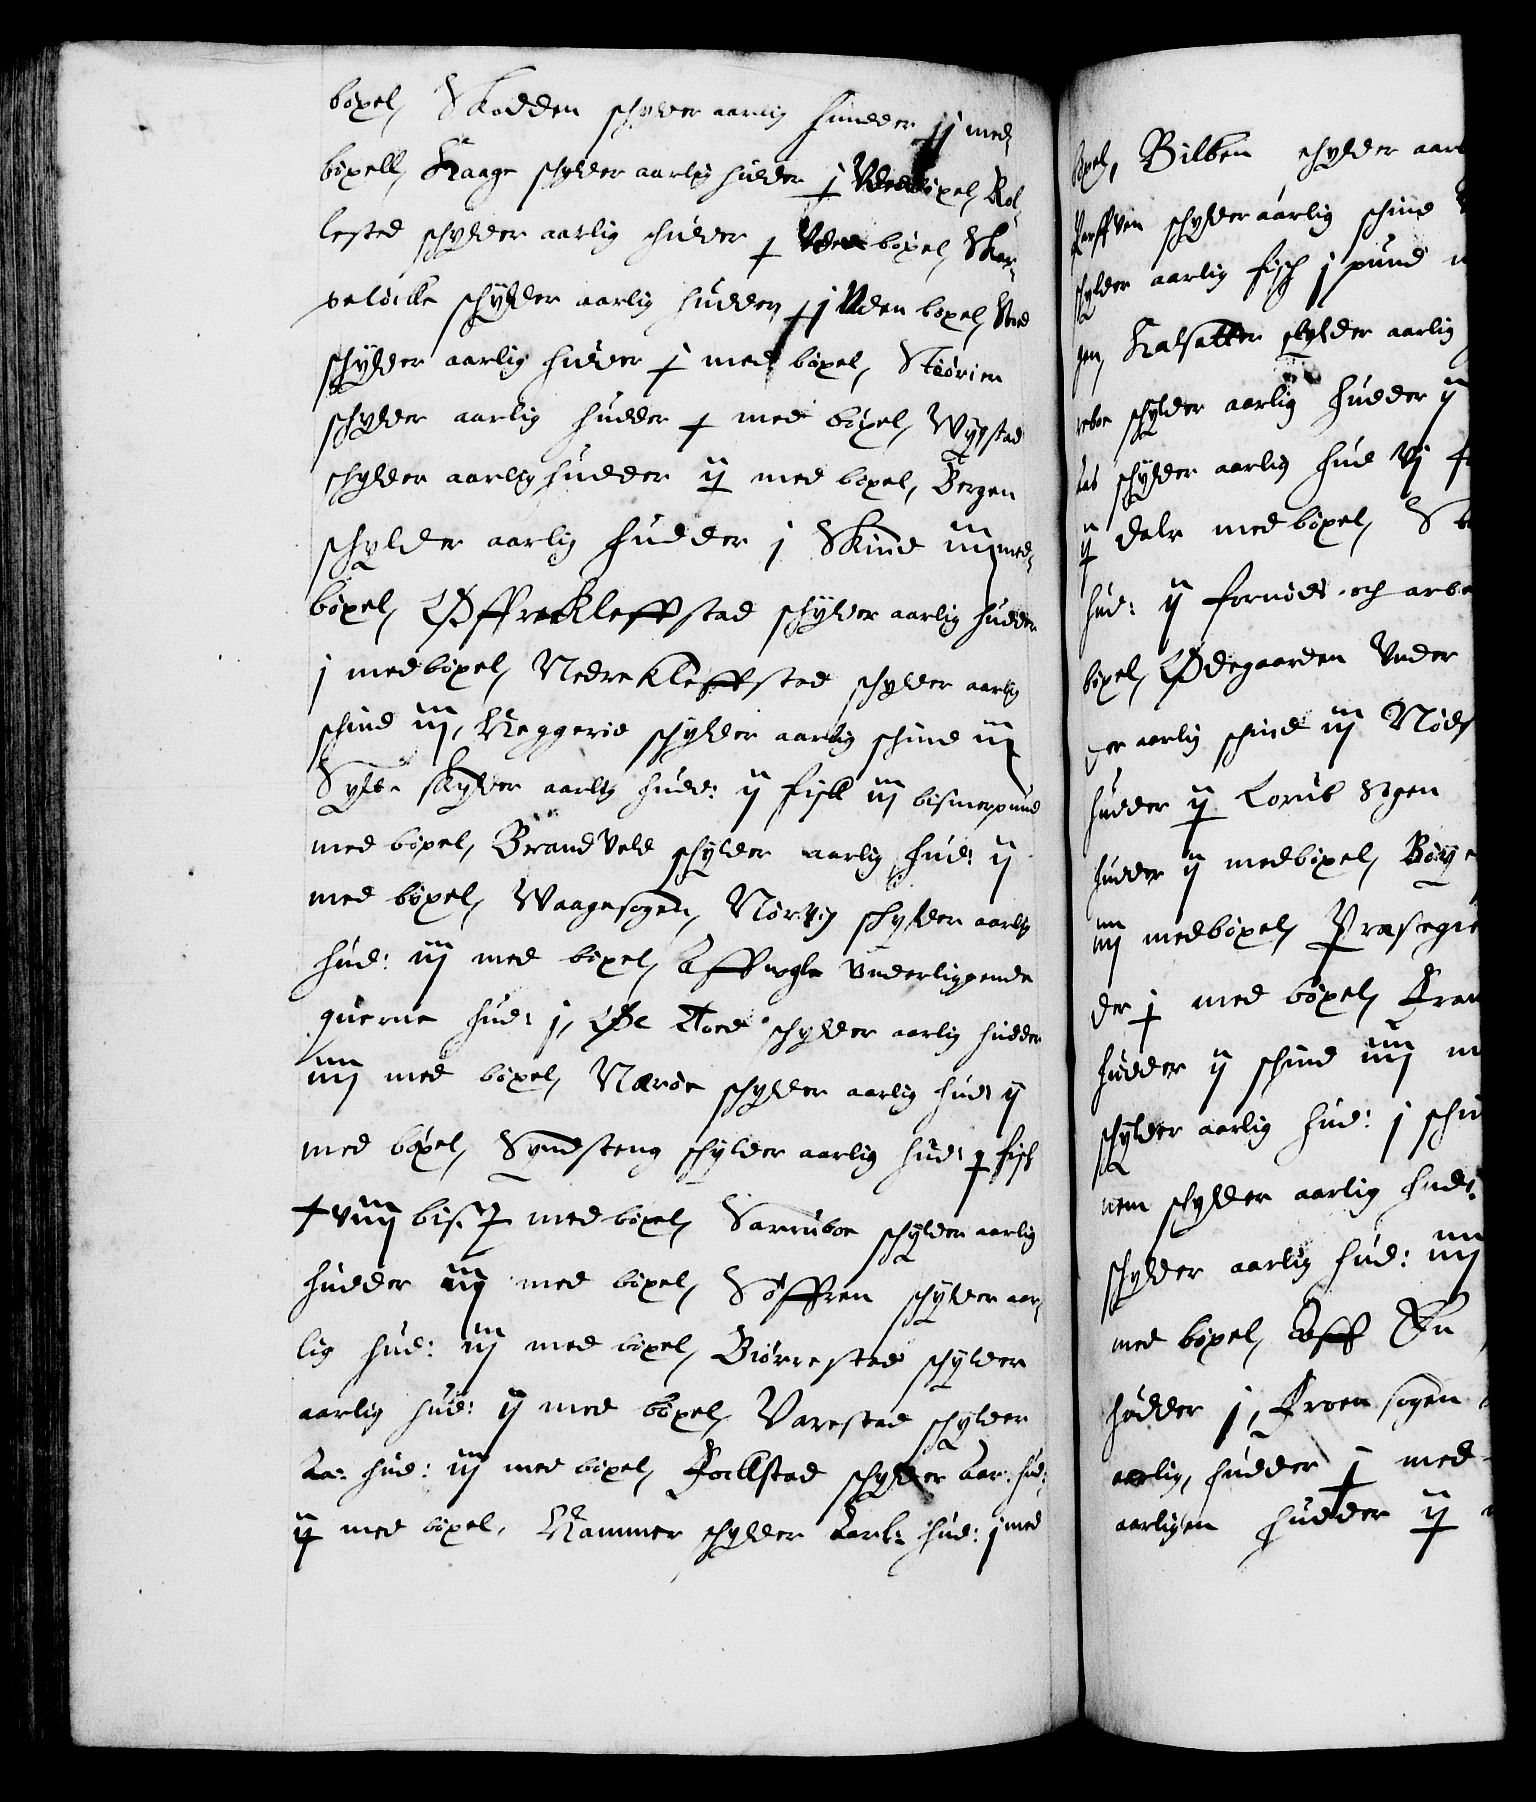 bøxel, Skodden schylder aarlig hudder ij med
bøxell, Haage schylder aarlig hudder j Uden bøxel, Kol-
lested schylder aarlig hudder j Uden bøxel, Skar-
peløcke schylder aarlig hudder j Uden boxel,
schylder aarlig hudder j med bøxel, Støvien
schylder aarlig hudder j med bøxel, Wÿgstad
schylder aarlig hudder ij med bøxel, Bergen
schylder aarlig hudder j Skind iij med
bøxel, Øffrekleffstad schylder aarlig hudder
j med bøxel, Nedrekleffstad schylder aarlig
schind iij, Heggerie schylder aarlig schind iij
Sylte skylder aarlig hudd: ij fisk iij bismerpund
med bøxel, Brandvold schylder aarlig hud: ij
med bøxel, Waagesogen, Nørvig schylder aarlig
hud: iij med bøxel, Aff nogle Underliggende
querne hud: j, Øc Tord schylder aarlig hudder
iiij med bøxel, Nærøe schylder aarlig hud: ij
med bøxel, Syndsteng schylder aarlig hud: j fisk
viij bis. med bøxel, Sarruboe schylder aarlig
hudder iij med bøxel, Søffren schylder aar-
lig hud: iij med bøxel, Biørrestad schylder
aarlig hud: ij med bøxel, Varestad schylder
Aa: hud: iij med bøxel, Fockstad schylder Aar: hud:
ij med bøxel, Hammer schylder Aarl: hud: j med
bøxel, Bilben schylder aarl
schylder aarlig schind
schylder aarlig fisch j pund
gen, Kalsatter schylder aarlig
reboe schylder aarlig hudder ij
schylder aarlig hud vj
ij dalr med bøxel,
hud: ij fornøds och arbe
bøxel, Ødegaarden Under
der aarlig schind iij Nøds
hudder ij Lorüb Sogen
hudder ij med bøxel, Bøÿe
iiij med bøxel, Præstegie
der j med bøxel, Kran
hudder ij schind iiij m
schylder aarlig hud: j schin
nem schylder aarlig hud:
schylder aarlig hud: iiij
med bøxel, Aff En
hødder j, Froen sogen
aarlig, hudder j med
aarligen hudder ij